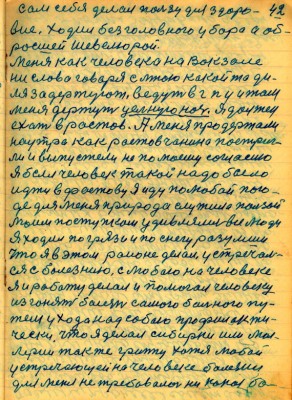 сам себя делал пользу для здоро- 42
вие. Ходил без головного убора а об-
росшей шевелюрой.
Меня как человека на вокзале
ни слова говоря с мною какой та ди-
ля задерживают, ведут в г п у и там
меня держут целную ноч. Я должен
ехат в Растов. А меня продержали
на утра как растовчанина постриг-
ли и выпустели не по моему согласию
Я бсел человек такой надо бсело
идти в фостову Я иду по любой пого-
де для меня природа служила ползой
Моим поступкам удивлялис все люди
Я ходил по грязи и по снегу разумии
Что я в этом районе делал и встречал-
ся с болезнию, с любою на человеке
Я и работу делал и помогал человеку
изгонят болезн самого болного пу-
тем ухода над собою профилакти-
чески, что я делал сибирки или мол-
лерии так же гриппу хотя любой
устречающей на человеке болезни
для меня не требовалос ни каког ба-